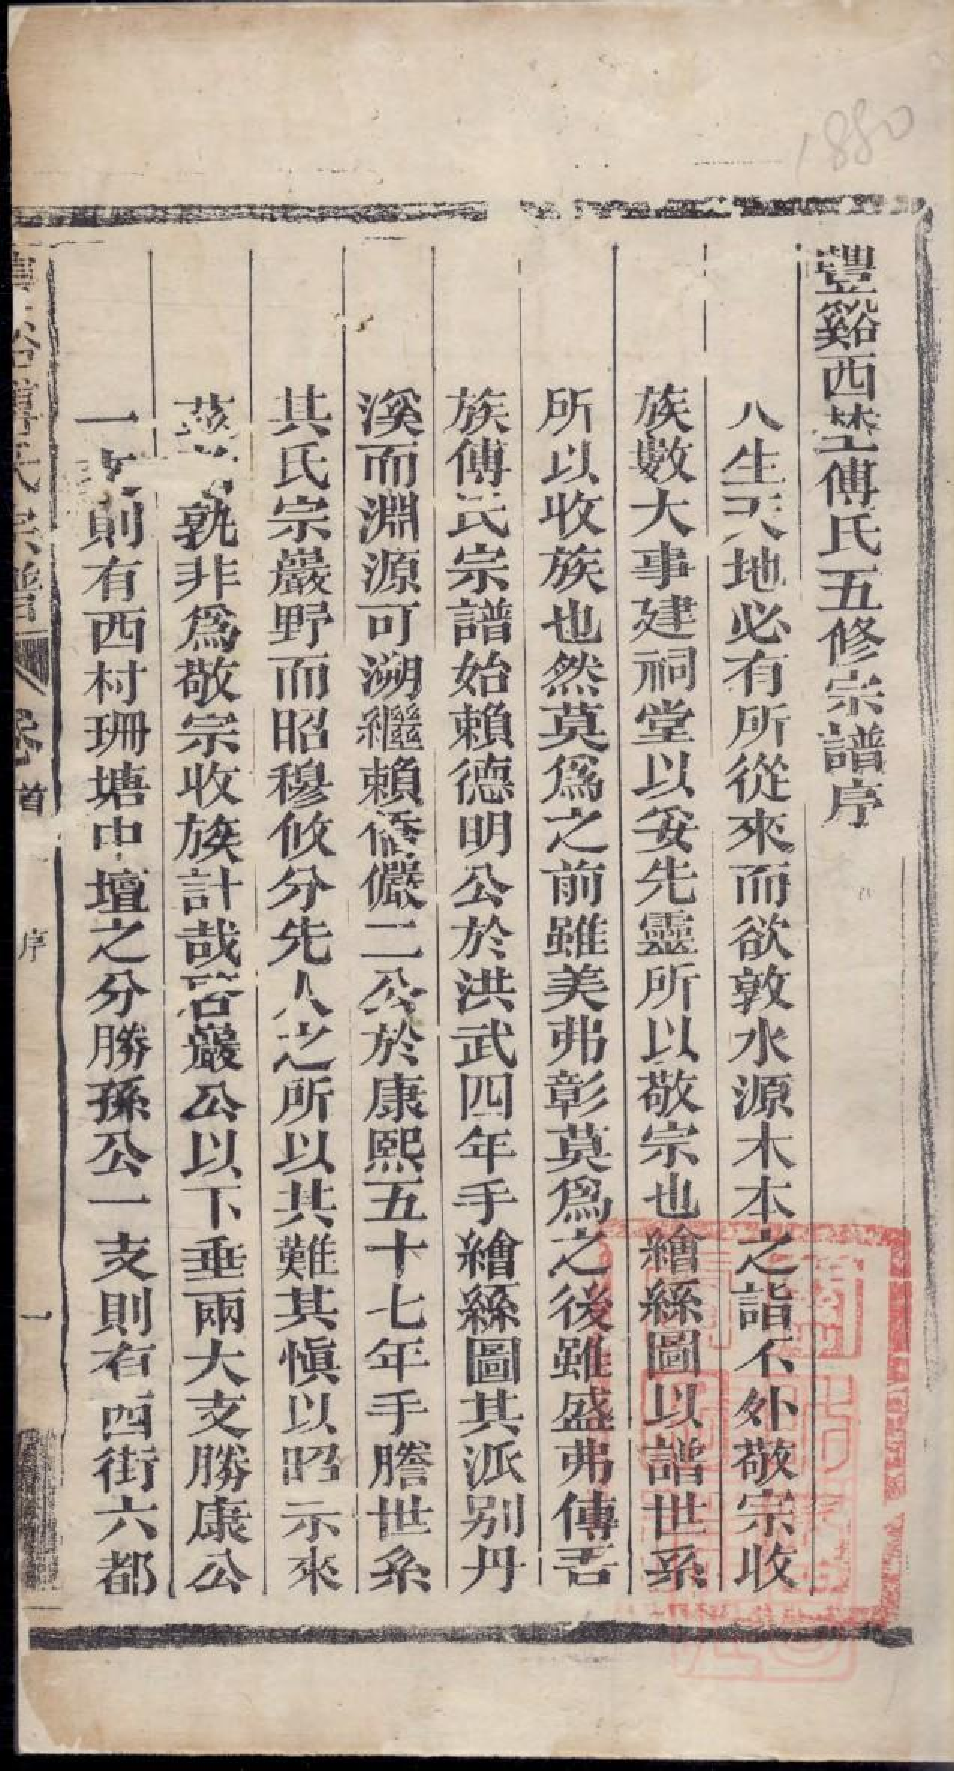 豐谿西埜傅氏五修宗譜序
人生天地必有所從來而欲敦水源木本之詣不外敬宗收
族數大事建祠堂以妥先靈所以敬宗也繪絲圖以譜世系
所以收族也然莫爲之前雖美弗彰莫爲之後雖盛弗傳吾
族傅氏宗譜始賴德明公於洪武四年手繪絲圖其派別丹
溪而淵源可溯繼賴儒儼二公於康熙五十七年手謄世系
其氏宗嚴野而昭穆攸分先人之所以其難其愼以昭示來
孰非爲敬宗收族計哉若巖公以下垂兩大支勝康公
一支則有西村珊塘中壇之分勝孫公一支則有西街六都
谿傅氏宗譜 卷首 序 一
1880